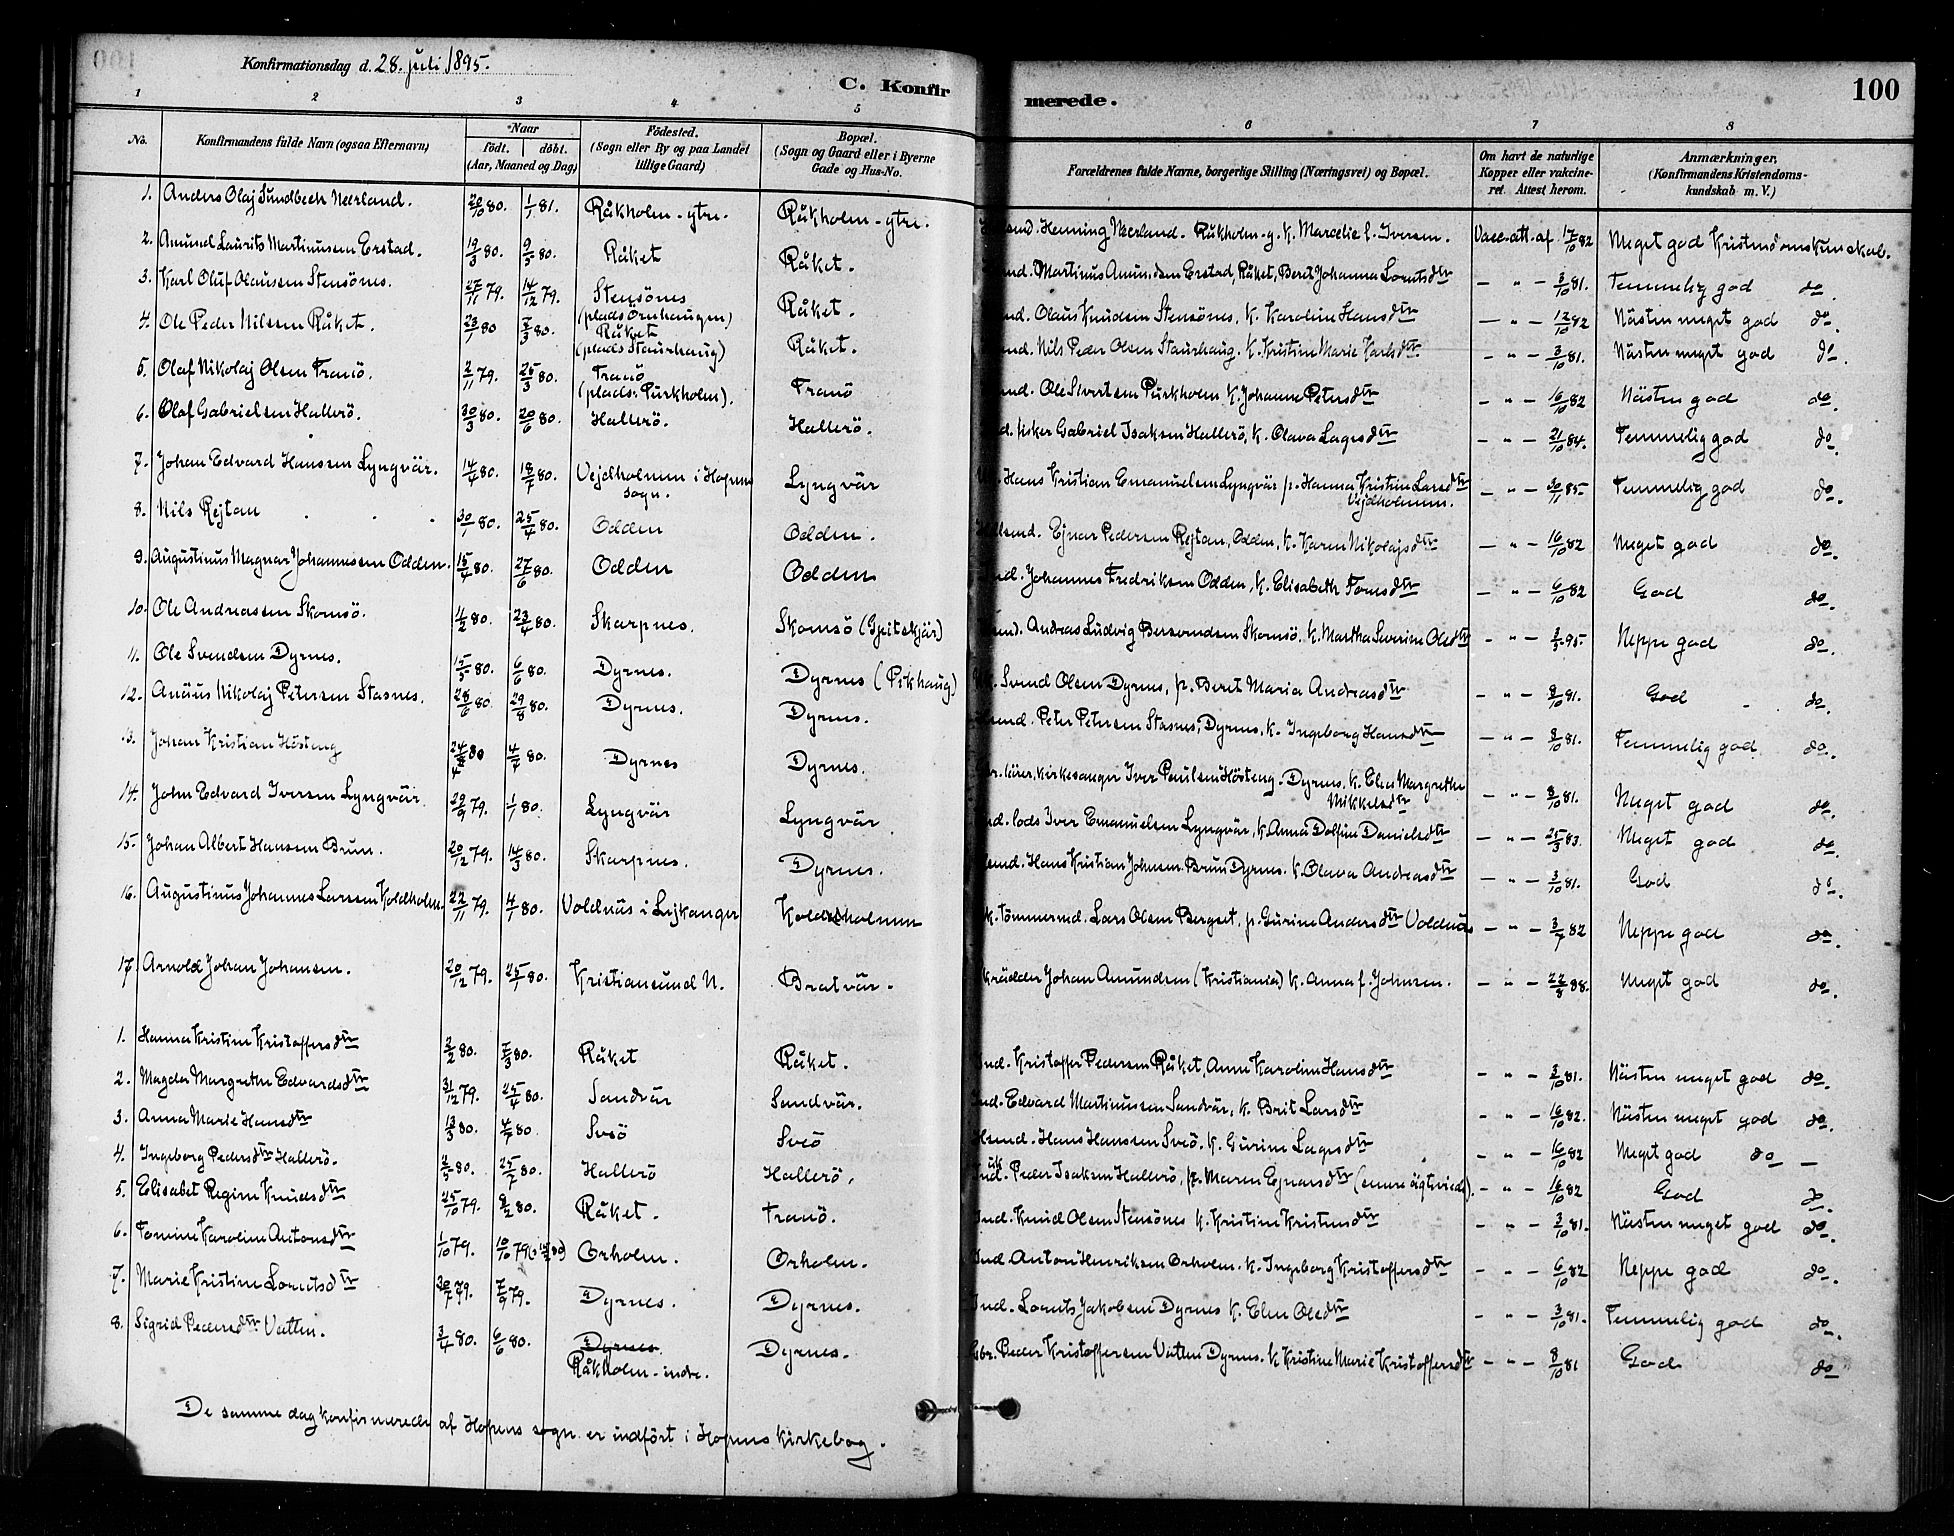 Konfirmationsdag d. 28. juli 1895.
C. Konfirmerede. 100
1 2 3 4 5 6 7 8
No. Konfirmandens fulde Navn (ogsaa Efternavn) Naar födt. döbt. (Aar, Maaned og Dag) Födested. (Sogn eller By og paa Landet tillige Gaard) Bopæl. (Sogn og Gaard eller i Byerne Gade og Hus-No. Forældrenes fulde Navne, borgerlige Stilling (Næringsvei) og Bopæl. Om havt de naturlige Kopper eller vakcineret. Attest herom. Anmærkninger. (Konfirmandens Kristendomskundskab m. V.)
1. Anders Olaj Sundbech Neerland. 20/10 80. 1/1 81. Råkholm-ytre. Råkholm-ytre. Henning Neerland. Råkholm-y. K. Marcelie f. Iversen. Vacc.att. af 17/10 82 Meget god Kristendomskunskab.
2. Amund Laurits Martinusen Erstad. 19/3 80. 9/5 80. Råket Råket. Martinus Amundsen Erstad, Råket, Beret Johanna Lorntsdtr — " — 3/10 81. Temmelig god do.
3. Karl Oluf Olausen Stensönes. 27/11 79. 14/12 79. Stensönes (plads Örnhaugen) Råket. Olaus Knudsen Stensönes, K. Karoline Hansdtr — " — 12/10 82 Nästen meget god do.
4. Ole Peder Nilssen Råket. 23/1 80 7/3 80. Råket (plads Staurhaug) Råket. Nils Peder Olsen Staurhaug. K. Kristine Marie Karlsdtr — " — 3/10 81. Nästen meget god do.
5. Olaf Nikolaj Olsen Tranö. 2/11 79. 25/3 80. Tranö (plads. Purkholm). Tranö Ole Sivertsen Purkholm K. Johanne Petersdtr — " — 16/10 82 Nästen god do.
6. Olaf Gabrielsen Hallerö. 30/3 80. 20/6 80. Hallerö. Hallerö. fisker Gabriel Isaksen Hallerö, K. Olava Lagesdtr — " — 21/10 84. Temmelig god do.
7. Johan Edvard Hanssen Lyngvär. 14/4 80. 18/7 80. Vejdholmen i Hopens sogn. Lyngvär Hans Kristian Emanuelsen Lyngvär p. Hanna Kristine Larsdtr Vejdholmen. — " — 30/11 85 Temmelig god do.
8. Nils Rejtan 30/1 80. 25/4 80. Odden Odden. Ejnar Pedersen Rejtan, Odden, K. Karen Nikolajsdtr — " — 16/10 82 Meget god do.
9. Augustinus Magnar Johannessen Odden. 15/4 80. 27/6 80. Odden Odden Johannes Fredriksen Odden, K. Elisabeth Tomsdtr — " — 6/10 82 God do.
10. Ole Andreassen Skomsö. 11/2 80. 23/4 80. Skarpnes. Skomsö (Gjitskjär) Andreas Ludvig Berentsen Skomsö. K. Martha Severine Olsdtr — " — 3/5 95. Neppe god do.
11. Ole Svendsen Dyrnes. 15/5 80. 6/6 80. Dyrnes. Dyrnes (Pikhaug) Svend Olsen Dyrnes, p. Beret Maria Andreasdtr — " — 8/10 81. God do.
12. Anäus Nikolaj Petersen Stasnes. 28/6 80. 29/8 80. Dyrnes. Dyrnes. Peter Petersen Stasnes, Dyrnes, K. Ingeborg Hansdtr — " — 8/10 81. Temmelig god do.
13. Johan Kristian Hösteng 24/4 80 4/4 80. Dyrnes Dyrnes. kirkesanger Iver Paulsen Hösteng. Dyrnes. K. Elen Margrethe Mikkelsdtr — " — 8/10 81. Meget god do.
14. John Edvard Iversen Lyngvär 29/9 79. 1/1 80. Lyngvär Lyngvär lods Iver Emanuelsen Lyngvär, K. Anna Dolfine Danielsdtr — " — 25/3 83. Meget god do.
15. Johan Albert Hansen Brun. 20/12 79. 14/3 80. Skarpnes. Dyrnes. Hans Kristian Johnsen Brun Dyrnes. K. Olava Andreasdtr — " — 3/10 81. God do.
16. Augustinus Johannes Larssen Koldholm. 22/11 79. 4/1 80. Voldnäs i Lejkanger Koldholmen Tömmermd. Lars Olsen Bergset, p. Gurine Andersdtr Voldnäs — " — 3/7 82 Neppe god do.
17. Arnold Johan Johansen. 20/12 79. 25/1 80. Kristiansund N. Bratvär. Skrädder Johan Amundsen (Kristiania) K. Anna f. Johnsen. — " — 22/8 88. Meget god do.
1. Hanna Kristine Kristoffersdtr 3/2 80. 7/3 80. Råket Råket. Ind. Kristoffer Pedersen Råket, Anne Karoline Hansdtr — " — 3/10 81. Nästen meget god do.
2. Magda Margrethe Edvardsdtr 31/12 79. 25/4 80. Sandvär Sandvär. Ind. Edvard Martinussen Sandvär, K. Brit Larsdtr — " — 16/10 82. Nästen meget god do.
3. Anna Marie Hansdtr 13/3 80. 4/7 80. Sveö Sveö Hans Hanssen Sveö. K. Gurine Lagesdtr — " — 16/10 82 Meget god do —
4. Ingeborg Pedersdtr Hallerö. 2/5 80. 25/7 80. Hallerö Hallerö, Peder Isaksen Hallerö, p. Maren Ejnarsdtr (senere ägteviede). — " — 16/10 82 God do.
5. Elisabet Regine Knudsdtr 25/10 79. 8/2 80. Råket. Tranö. Ind. Knud Olsen Stensönes K. Kristine Kristensdtr — " — 3/10 81. Nästen meget god do.
6. Tomine Karoline Antonsdtr 1/10 79. 10/10 79 Orholm. Orholm. Ind. Anton Henriksen Orholm. K. Ingeborg Kristoffersdtr — " — 6/10 82 Neppe god do.
7. Marie Kristine Lorntsdtr 30/7 79. 7/9 79. Dyrnes. Dyrnes. Ind. Lornts Jakobsen Dyrnes K. Elen Olsdtr — " — 3/10 81. Temmelig god do.
8. Sigrid Pedersdtr Vatten. 3/4 80. 6/6 80. Dyrnes. Råkholm-indre. Dyrnes. Gbr. Peder Kristoffersen Vatten Dyrnes. K Kristine Marie Kristoffersdtr — " — 8/10 81 God do
De samme dag konfirmerede af Hopens sogn er indfört i Hopens kirkebog.